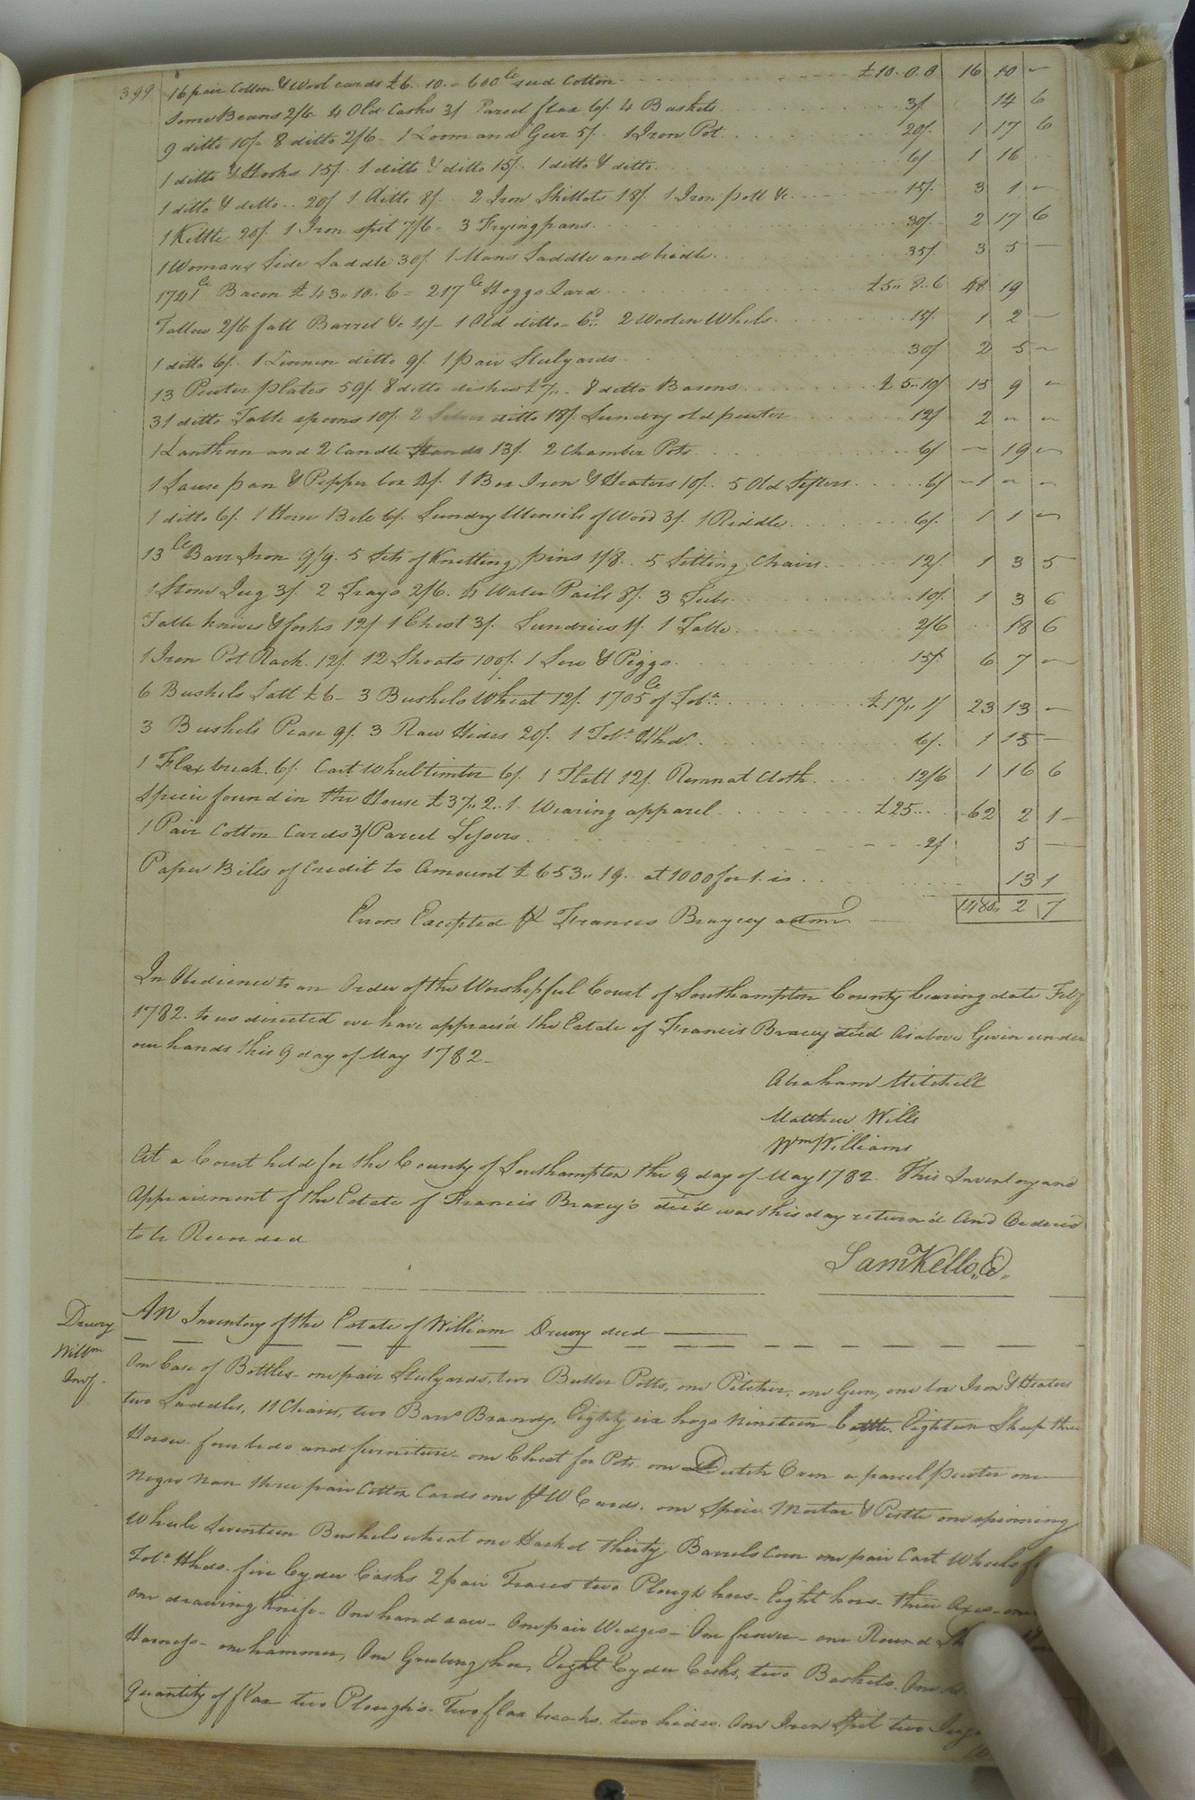 399
16 pair Cotton & Wool cards £6.10.- 600 lb seed Cotton £10.0.0 16 10 -
Some Beans 2/6 4 Old Casks 3/ Parcel flax 6/ 4 Baskets 3/ 14 6
9 ditto 10/- 8 ditto 2/6 1 Loom and Gear 5/ 1 Iron Pot 20/ 1 17 6
1 ditto & Hooks 15/ 1 ditto & ditto 15/ 1 ditto & ditto 6/ 1 16
1 ditto & ditto 20/ 1 ditto 8/ 2 Iron Skillets 18/ 1 Iron pott &c 15/ 3 1 -
1 Kettle 20/ 1 Iron spit 7/6 - 3 Fryingpans 30/ 2 17 6
1 Womans Side Saddle 30/ 1 Mans Saddle and bridle 35/ 3 5 -
1741 lb Bacon £43.10.6 - 217 lb Hoggs Lard £5.8.6 48 19
Tallow 2/6 fatt Barrel &c 4/- 1 Old ditto - 6d 2 Wooden Whels 15/ 1 2 -
1 ditto 6/ 1 Linnen ditto 9/ 1 pair Stilyards 30/ 2 5 -
13 Pewter plates 59/ 8 ditto dishes £7.. 8 ditto Basons £5..10/ 15 9 -
31 ditto Table spoons 10/ 2 ditto 18/ Sundry old pewter 12/ 2 - -
1 Lanthorn and 2 Candle Stands 13/ 2 Chamber Pots 6/ - 19 -
1 Sause pan & Pepper box 2/ 1 Box Iron & Heaters 10/ 5 Old Sifters 6/ - 1 - -
1 ditto 6/ 1 Horse Bell 6/ Sundry Utensils of Wood 3/ 1 Riddle 6/ 1 1 -
13 lb Barr Iron 9/9 5 Sets of Knitting pins 1/8 5 Sitting Chairs 12/ 1 3 5
1 Stone Jug 3/ 2 Trays 2/6 4 Water Pails 8/ 3 Tubs 10/ 1 3 6
Table knives & forks 12/ 1 Chest 3/ Sundries 1/ 1 Table 2/6 18 6
1 Iron Pot Rack 12/ 12 Shoats 100/ 1 Sow & Piggs 15/ 6 7 -
6 Bushels Salt £6 - 3 Bushels Wheat 12/ 1705 lb of Tobo £17..1/ 23 13 -
3 Bushels Pease 9/ 3 Raw Hides 20/ 1 Tobo Hhd 6/ 1 15 -
1 Flax break 6/ Cart Wheel timber 6/ 1 Flatt 12/ Remnat Cloth 12/6 1 16 6
Specie found in the House £37..2..1 Wearing apparel £25 62 2 1 -
1 Pair Cotton Cards 3/ Parcel 2/ 5 -
Paper Bills of Credit to Amount £653..19.. at 1000 for 1 is 13 1
Errors Excepted pr Francis Bracey admr 2 7
In Obedience to an Order of the Worshipful Court of Southampton County bearing date Feby
1782 to us directed we have apprais'd the Estate of Francis Bracey dec'd As above Given under
our hands this 9 day of May 1782 -
Abraham Mitchell
Matthew Wills
Wm Williams
At a Court held for the County of Southampton the 9 day of May 1782. This Inventory and
Appraisment of the Estate of Francis Bracey's dec'd was this day return'd And Ordered
to be Recorded
Sam Kello, C.
Drury
Willm
Invy.
An Inventory of the Estate of William Drury decd
One Case of Bottles - one pair Stilyards, two Butter Potts, one Pitcher, one Gun, one box Iron & Heaters
two Saddles, 11 Chairs, two Barrs Brandy, Eighty six hogs Nineteen Cattle Eighteen Sheep three
Horses four beds and furniture - one Chest four Pots one Dutch Oven a parcel pewter one
Negro man three pair Cotton Cards one pr W Cards. one Spice Mortar & Pestle one spinning
Wheele Seventeen Bushels wheat one Hackel Thirty Barrels Corn one pair Cart Wheels
Tobo Hhds. five Cyder Casks 2 pair Traces two Plough hoes - Eight hoes - three Axes - one
one drawing Knife - One hand saw - One pair Wedges - One frower - one Round
Harness - one hammer, One Grubing hoe, Eight Cyder Casks, two Baskets. One
Quantity of flax two Ploughs. Two flax breaks. two hides. One Iron Spit two Jugs